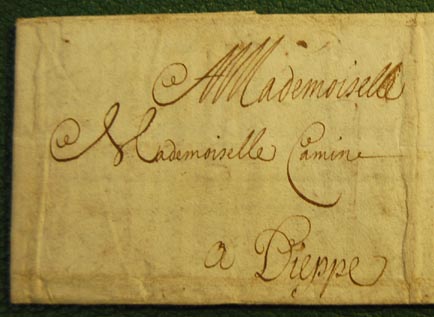 A Mademoiselle
Mademoiselle Camine
a Dieppe